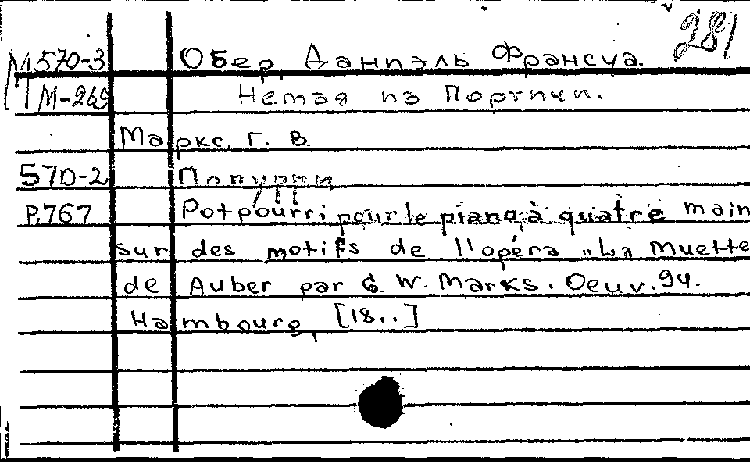 281
М 570-3 Обер, Даниэль Франсуа.
М-269 Немая из Портичи.
Маркс, Г. В.
570-2 Попурри
P.767 Potpourri pour le piano, à quatre main
sur des motifs de l'opéra „La Muette
de Auber par G. W. Marks. Oeuv. 94.
Hambourg, [18..]